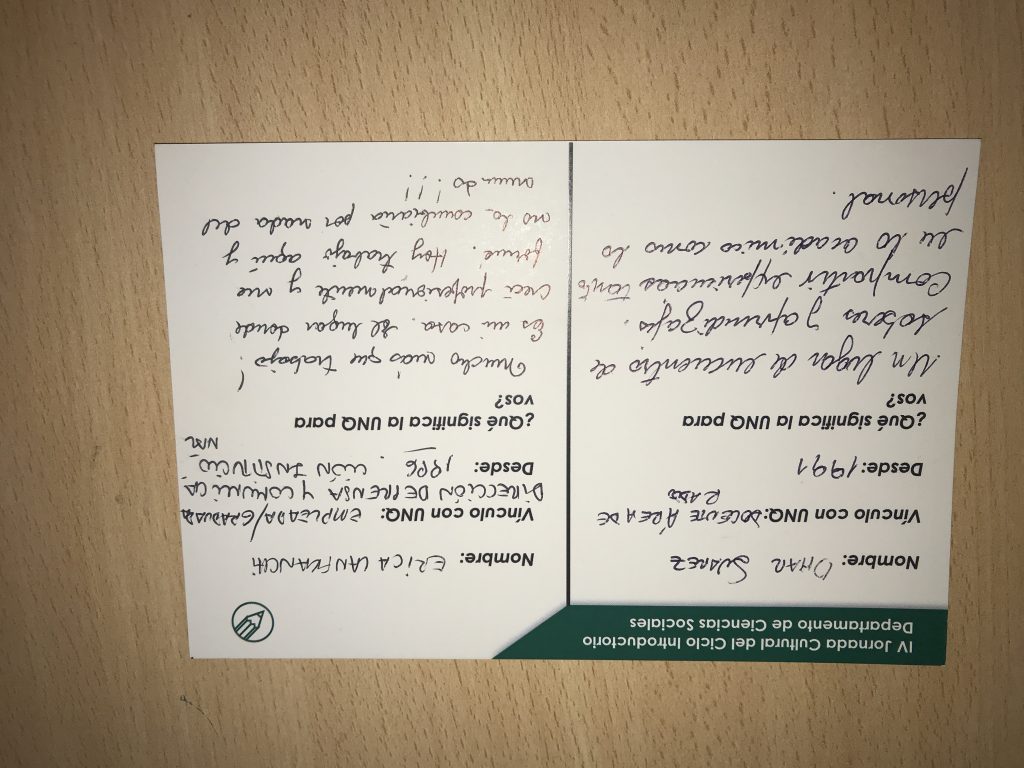 IV Jornada Cultural del Ciclo Introductorio
Departamento de Ciencias Sociales
Nombre: OMAR SUAREZ
Vínculo con UNQ: DOCENTE ÁREA DE
RADIO
Desde: 1991
¿Qué significa la UNQ para
vos?
Un lugar de encuentro de
saberes y aprendizajes.
Compartir experiencias tanto
en lo académico como lo
personal.
Nombre: ERICA LANFRANCHI
Vínculo con UNQ: EMPLEADA/GRADUADA
DIRECCIÓN DE PRENSA Y COMUNICA
Desde: 1996. CIÓN INSTITUCIO
NAL
¿Qué significa la UNQ para
vos?
Mucho más que trabajo!
Es mi casa. El lugar donde
crecí profesionalmente y me
formé. Hoy trabajo aquí y
no lo cambiaría por nada del
mundo!!!